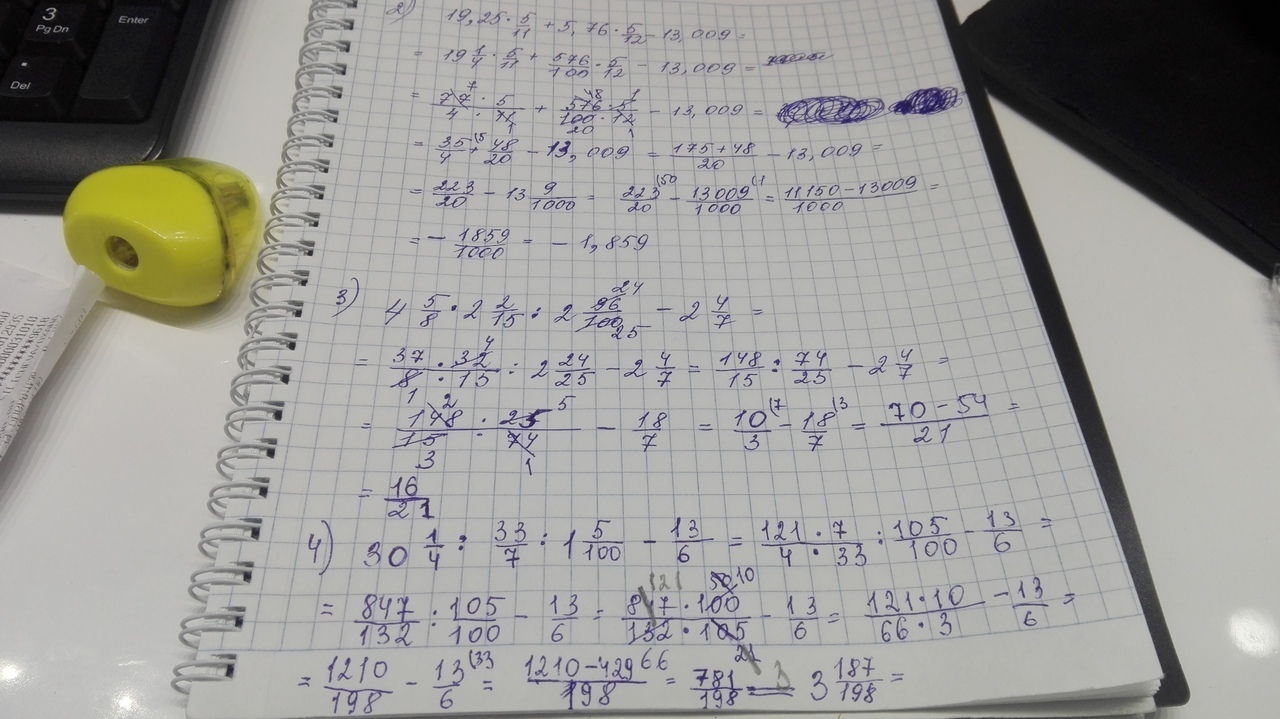 3
Pg Dn
Enter
.
Del
2) 19,25 · 5/11 + 5,76 · 5/12 - 13,009 =
= 19 1/4 · 5/11 + 576/100 · 5/12 - 13,009 =
= 77 7 · 5 / 4 · 11 1 + 576 48 · 5 1 / 100 20 · 12 1 - 13,009 =
= 35/4 (5 + 48/20 - 13,009 = 175+48/20 - 13,009 =
= 223/20 - 13 9/1000 = 223/20 (50 - 13009/1000 (1 = 11150-13009/1000 =
= - 1859/1000 = - 1,859
3) 4 5/8 · 2 2/15 : 2 96 24/100 25 - 2 4/7 =
= 37 · 32 4 / 8 1 · 15 : 2 24/25 - 2 4/7 = 148/15 : 74/25 - 2 4/7 =
= 148 2 · 25 5 / 15 3 · 74 1 - 18/7 = 10/3 (7 - 18/7 (3 = 70-54/21 =
= 16/21
4) 30 1/4 : 33/7 : 1 5/100 - 13/6 = 121 · 7 / 4 · 33 : 105/100 - 13/6 =
= 847/132 : 105/100 - 13/6 = 847 121 · 100 50 10 / 132 · 105 21 3 - 13/6 = 121·10 / 66·3 - 13/6 =
= 1210/198 - 13/6 (33 = 1210-429/198 66 = 781/198 = 3 187/198 =